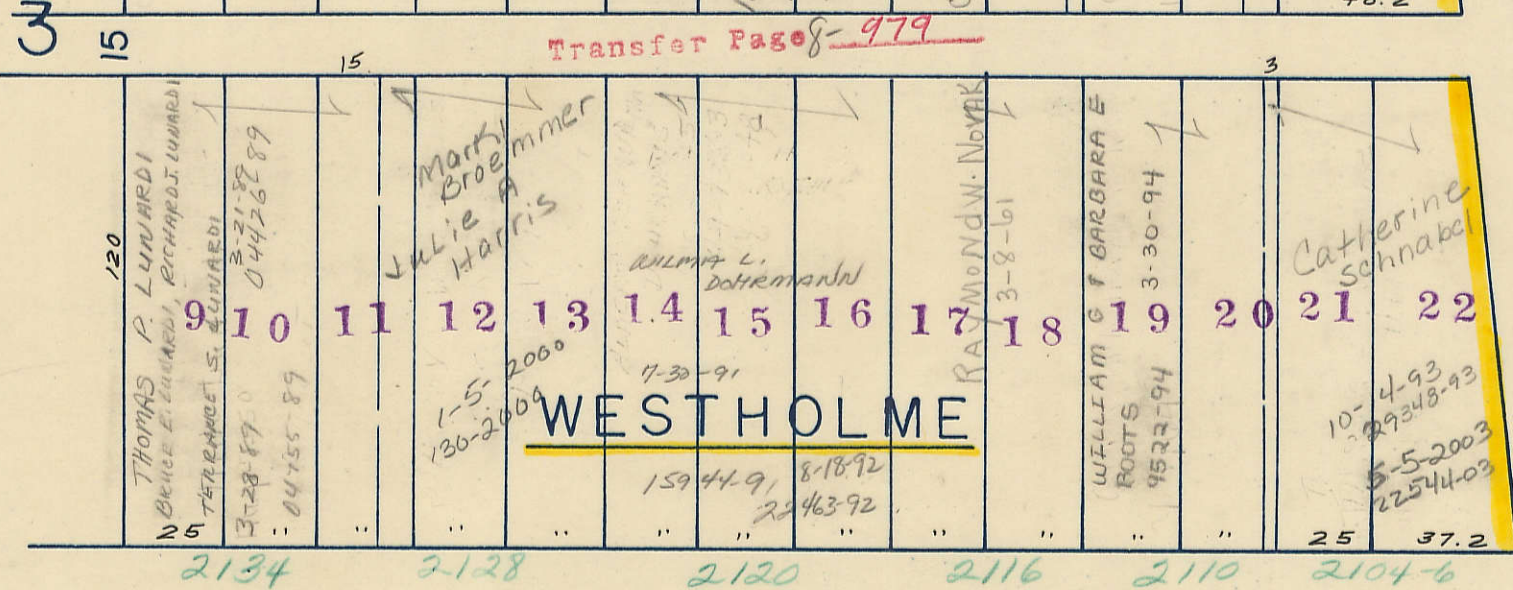 3
15
Transfer Page 8-979
15
3
120
THOMAS P. LUNARDI
BRUCE E. LUNARDI, RICHARD J. LUNARDI
TERRANCE S. LUNARDI
3-21-89
04426289
3-28-89
04755-89
Mark J
Broemmer
Julie A
Harris
1-5-2000
130-2000
WILMA L.
DOHRMANN
7-30-91
15944-91
8-18-92
22463-92
RAYMOND W. NOVAK
3-8-61
WILLIAM G & BARBARA E
ROOTS
3-30-94
9522-94
Catherine
Schnabel
10-4-93
29348-93
5-5-2003
22544-03
9 10 11 12 13 14 15 16 17 18 19 20 21 22
WESTHOLME
25 " " " " " " " " " " " 25 37.2
2134 2128 2120 2116 2110 2104-6